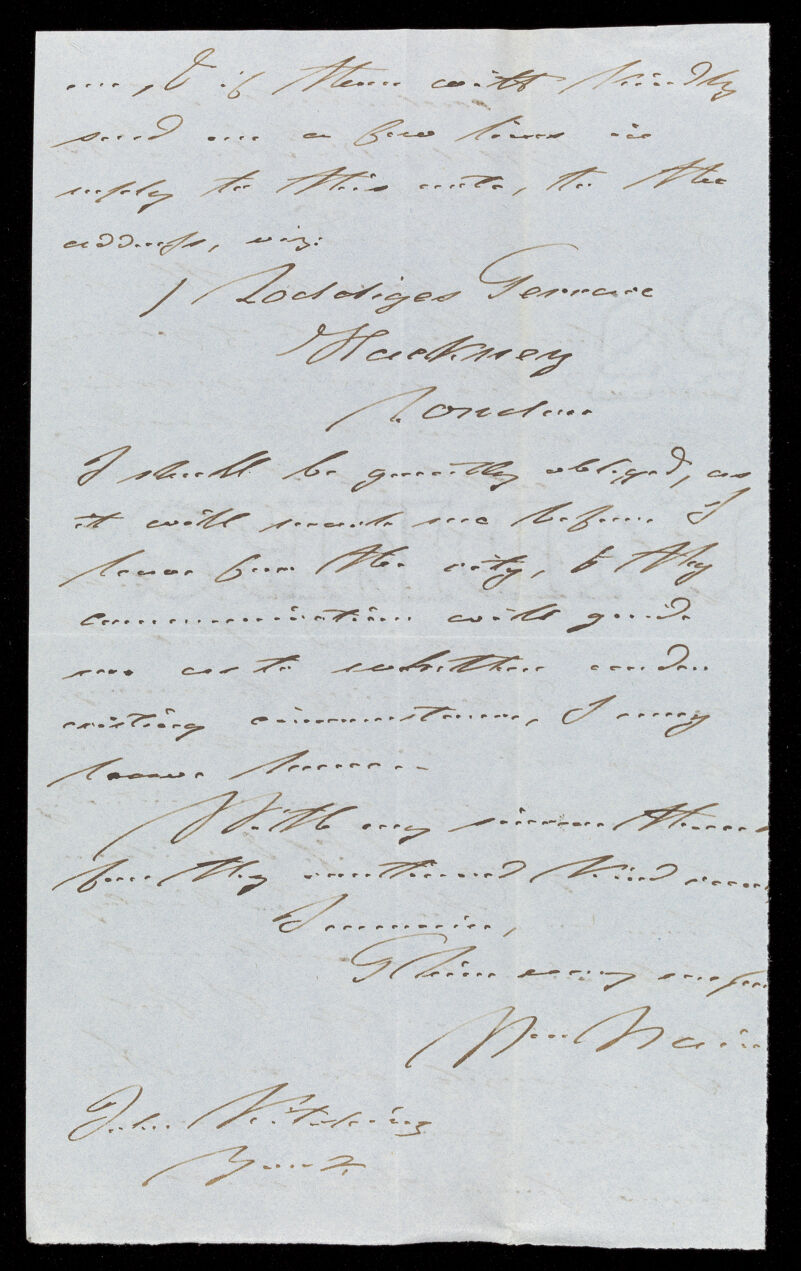 me, & if thou wilt kindly
send me a few lines in
reply to this note, to the
address, viz:
1 Loddiges Terrace
Hackney
London
I shall be greatly obliged, as
it will reach me before I
leave for the city, & thy
communication will guide
me as to whether under
existing circumstances, I may
leave home.
With my sincere thanks
for thy continued kind
I remain,
Thine very
Wm
John Kitching
York